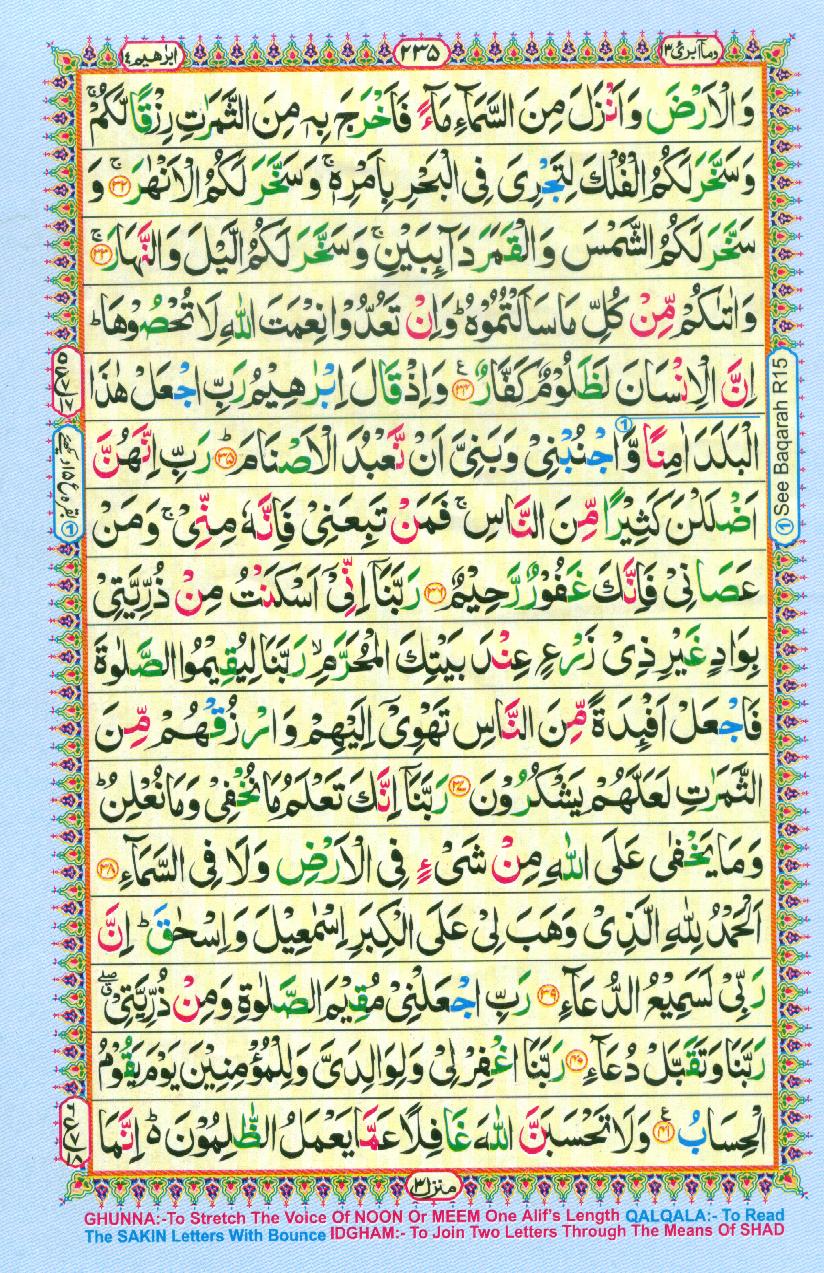 ابرٰهيم ١٤
٢٣٥
ومآ ابرئ ١٣
وَالْاَرْضَ وَاَنْزَلَ مِنَ السَّمَآءِ مَآءً فَاَخْرَجَ بِهٖ مِنَ الثَّمَرٰتِ رِزْقًا لَّكُمْ ۚ
وَسَخَّرَ لَكُمُ الْفُلْكَ لِتَجْرِىَ فِى الْبَحْرِ بِاَمْرِهٖ ۚ وَسَخَّرَ لَكُمُ الْاَنْهٰرَ ۚ ﴿٣٢﴾ وَ
سَخَّرَ لَكُمُ الشَّمْسَ وَالْقَمَرَ دَآئِبَيْنِ ۚ وَسَخَّرَ لَكُمُ الَّيْلَ وَالنَّهَارَ ۚ ﴿٣٣﴾
وَاٰتٰىكُمْ مِّنْ كُلِّ مَا سَاَلْتُمُوْهُ ؕ وَاِنْ تَعُدُّوْا نِعْمَتَ اللّٰهِ لَا تُحْصُوْهَا ؕ
اِنَّ الْاِنْسَانَ لَظَلُوْمٌ كَفَّارٌ ﴿٣٤﴾ ع وَاِذْ قَالَ اِبْرٰهِيْمُ رَبِّ اجْعَلْ هٰذَا
الْبَلَدَ اٰمِنًا وَّاجْنُبْنِىْ وَبَنِىَّ اَنْ نَّعْبُدَ الْاَصْنَامَ ؕ ﴿٣٥﴾ رَبِّ اِنَّهُنَّ
اَضْلَلْنَ كَثِيْرًا مِّنَ النَّاسِ ۚ فَمَنْ تَبِعَنِىْ فَاِنَّهٗ مِنِّىْ ۚ وَمَنْ
عَصَانِىْ فَاِنَّكَ غَفُوْرٌ رَّحِيْمٌ ﴿٣٦﴾ رَبَّنَاۤ اِنِّىْۤ اَسْكَنْتُ مِنْ ذُرِّيَّتِىْ
بِوَادٍ غَيْرِ ذِىْ زَرْعٍ عِنْدَ بَيْتِكَ الْمُحَرَّمِ ۙ رَبَّنَا لِيُقِيْمُوا الصَّلٰوةَ
فَاجْعَلْ اَفْئِدَةً مِّنَ النَّاسِ تَهْوِىْۤ اِلَيْهِمْ وَارْزُقْهُمْ مِّنَ
الثَّمَرٰتِ لَعَلَّهُمْ يَشْكُرُوْنَ ﴿٣٧﴾ رَبَّنَاۤ اِنَّكَ تَعْلَمُ مَا نُخْفِىْ وَمَا نُعْلِنُ ؕ
وَمَا يَخْفٰى عَلَى اللّٰهِ مِنْ شَىْءٍ فِى الْاَرْضِ وَلَا فِى السَّمَآءِ ﴿٣٨﴾
اَلْحَمْدُ لِلّٰهِ الَّذِىْ وَهَبَ لِىْ عَلَى الْكِبَرِ اِسْمٰعِيْلَ وَاِسْحٰقَ ؕ اِنَّ
رَبِّىْ لَسَمِيْعُ الدُّعَآءِ ﴿٣٩﴾ رَبِّ اجْعَلْنِىْ مُقِيْمَ الصَّلٰوةِ وَمِنْ ذُرِّيَّتِىْ ۖق
رَبَّنَا وَتَقَبَّلْ دُعَآءِ ﴿٤٠﴾ رَبَّنَا اغْفِرْ لِىْ وَلِوَالِدَىَّ وَلِلْمُؤْمِنِيْنَ يَوْمَ يَقُوْمُ
الْحِسَابُ ﴿٤١﴾ ع وَلَا تَحْسَبَنَّ اللّٰهَ غَافِلًا عَمَّا يَعْمَلُ الظّٰلِمُوْنَ ؕ۬ اِنَّمَا
① See Baqarah R15
منزل ٣
GHUNNA:-To Stretch The Voice Of NOON Or MEEM One Alif's Length QALQALA:- To Read
The SAKIN Letters With Bounce IDGHAM:- To Join Two Letters Through The Means Of SHAD